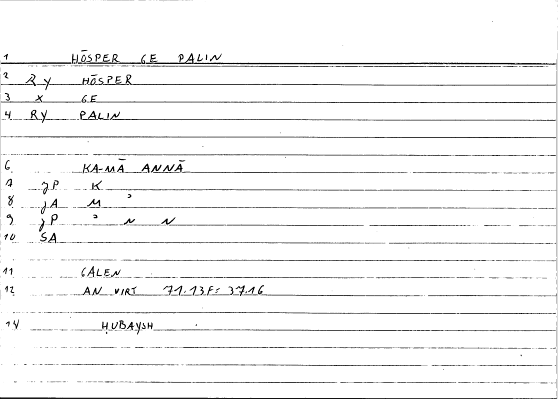 1 HŌSPER GE PALIN
2 RY HŌSPER
3 X GE
4 RY PALIN
6 KA-MĀ ANNĀ
7 JP K
8 JA M ʾ
9 JP ʾ N N
10 SA
11 GALEN
12 AN VIRT 71.13F= 37.16
14 ḤUBAYSH